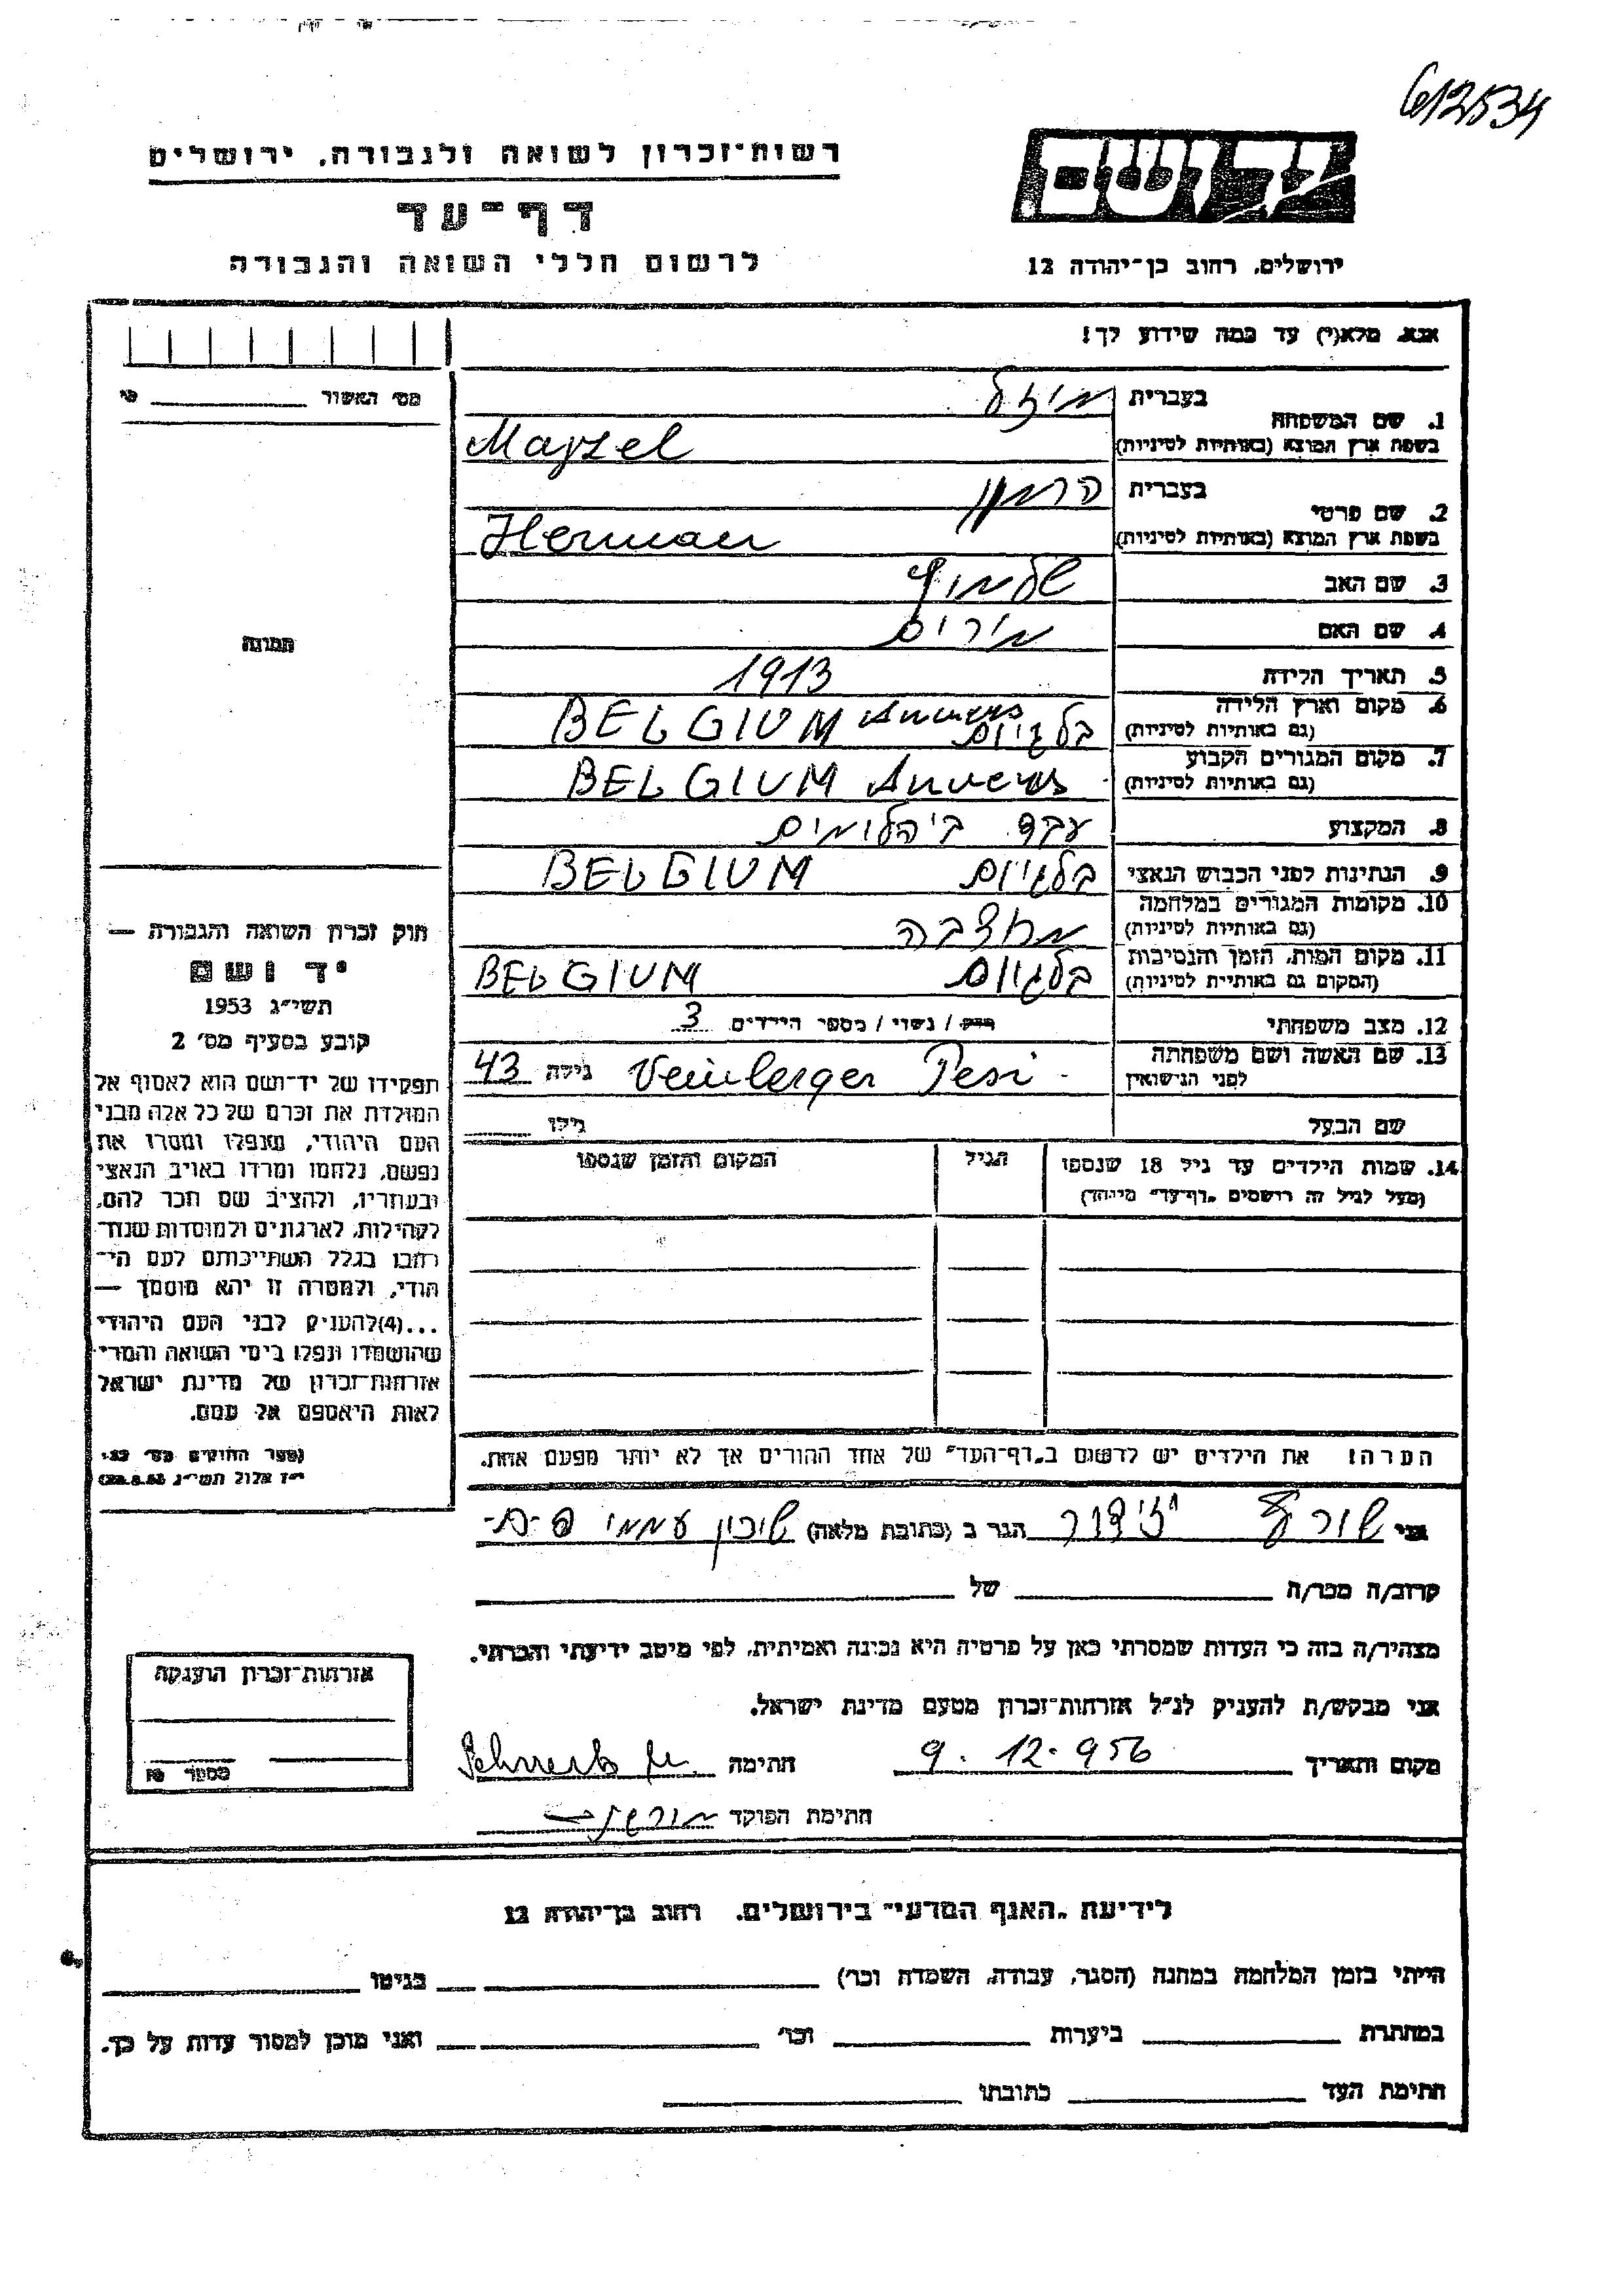 612534
יד ושם
רשות־זכרון לשואה ולגבורה, ירושלים
דף־עד
ירושלים, רחוב בן־יהודה 12
לרשום חללי השואה והגבורה
אנא, מלא(י) עד כמה שידוע לך!
מס׳ האשור
1. שם המשפחה
בעברית מיזל
בשפת ארץ המוצא (באותיות לטיניות) Majzel
2. שם פרטי
בעברית הרמן
בשפת ארץ המוצא (באותיות לטיניות) Herman
3. שם האב
4. שם האם מירים
תמונה
5. תאריך הלידה 1913
6. מקום וארץ הלידה (גם באותיות לטיניות) בלגיום BELGIUM Anvers
7. מקום המגורים הקבוע (גם באותיות לטיניות) BELGIUM Anvers
8. המקצוע עבד ביהלומים
9. הנתינות לפני הכבוש הנאצי בלגיום BELGIUM
10. מקומות המגורים במלחמה (גם באותיות לטיניות)
11. מקום המות, הזמן והנסיבות (המקום גם באותיות לטיניות) בלגיום BELGIUM
12. מצב משפחתי רוק / נשוי / מספר הילדים 3
13. שם האשה ושם משפחתה לפני הנישואין Veinberger Pesi גילה 43
שם הבעל גילו
14. שמות הילדים עד גיל 18 שנספו הגיל המקום והזמן שנספו
(מעל לגיל זה רושמים „דף־עד״ מיוחד)
חוק זכרון השואה והגבורה —
יד ושם
תשי״ג 1953
קובע בסעיף מס׳ 2
תפקידו של יד־ושם הוא לאסוף אל
המולדת את זכרם של כל אלה מבני
העם היהודי, שנפלו ומסרו את
נפשם, נלחמו ומרדו באויב הנאצי
ובעוזריו, ולהציב שם וזכר להם,
לקהילות, לארגונים ולמוסדות שנח־
רבו בגלל השתייכותם לעם הי־
הודי, ולמטרה זו יהא מוסמך —
...(4) להעניק לבני העם היהודי
שהושמדו ונפלו בימי השואה והמרי
אזרחות־זכרון של מדינת ישראל
לאות היאספם אל עמם.
(ספר החוקים מס׳ 132,
י״ז אלול תשי״ג 28.8.53)
הערה: את הילדים יש לרשום ב„דף־העד״ של אחד ההורים אך לא יותר מפעם אחת.
אני הגר ב (כתובת מלאה) שיכון עממי פ-ת-
קרוב/ה מכר/ה של
מצהיר/ה בזה כי העדות שמסרתי כאן על פרטיה היא נכונה ואמיתית, לפי מיטב ידיעתי והכרתי.
אני מבקש/ת להעניק לנ״ל אזרחות־זכרון מטעם מדינת ישראל.
מקום ותאריך 9.12.956 חתימה
חתימת הפוקד
אזרחות־זכרון הוענקה
מספר
לידיעת „האגף המדעי״ בירושלים, רחוב בן־יהודה 12
הייתי בזמן המלחמה במחנה (הסגר, עבודה, השמדה וכו׳) בגיטו
במחתרת ביערות וכו׳ ואני מוכן למסור עדות על כך.
חתימת העד כתובתו